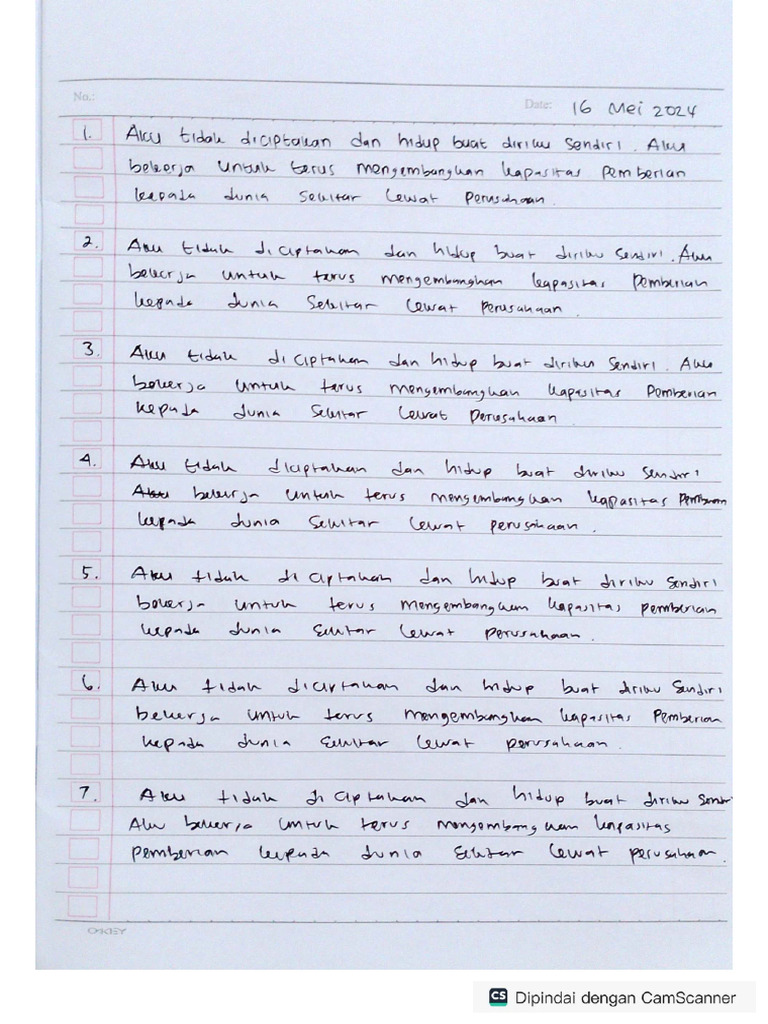 No.:
Date: 16 Mei 2024
1. Aku tidak diciptakan dan hidup buat diriku sendiri. Aku
bekerja untuk terus mengembangkan kapasitas pemberian
kepada dunia sekitar lewat perusahaan.
2. Aku tidak diciptakan dan hidup buat diriku sendiri. Aku
bekerja untuk terus mengembangkan kapasitas pemberian
kepada dunia sekitar lewat perusahaan.
3. Aku tidak diciptakan dan hidup buat diriku sendiri. Aku
bekerja untuk terus mengembangkan kapasitas pemberian
kepada dunia sekitar lewat perusahaan.
4. Aku tidak diciptakan dan hidup buat diriku sendiri
Aku bekerja untuk terus mengembangkan kapasitas pemberian
kepada dunia sekitar lewat perusahaan.
5. Aku tidak diciptakan dan hidup buat diriku sendiri
bekerja untuk terus mengembangkan kapasitas pemberian
kepada dunia sekitar lewat perusahaan.
6. Aku tidak diciptakan dan hidup buat diriku sendiri
bekerja untuk terus mengembangkan kapasitas pemberian
kepada dunia sekitar lewat perusahaan.
7. Aku tidak diciptakan dan hidup buat diriku sendiri
Aku bekerja untuk terus mengembangkan kapasitas
pemberian kepada dunia sekitar lewat perusahaan.
OKEY
CS Dipindai dengan CamScanner